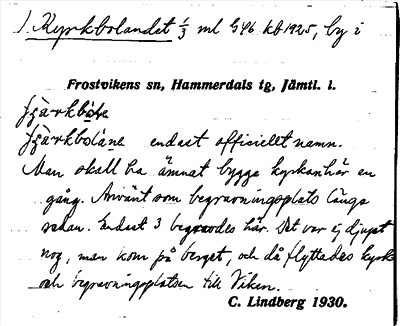 1. Kyrkbolandet 1/3 ml G46 kb 1925, by i
Frostvikens sn, Hammerdals tg, Jämtl. l.
endast officiellt namn.
Man skall ha ämnat bygga kyrkan här en
gång. Använt som begravningsplats länge
sedan. Endast 3 begravdes här. Det var ej djupt
nog, man kom på berget, och då flyttades kyrk
och begravningsplatsen till Viken.
C. Lindberg 1930.